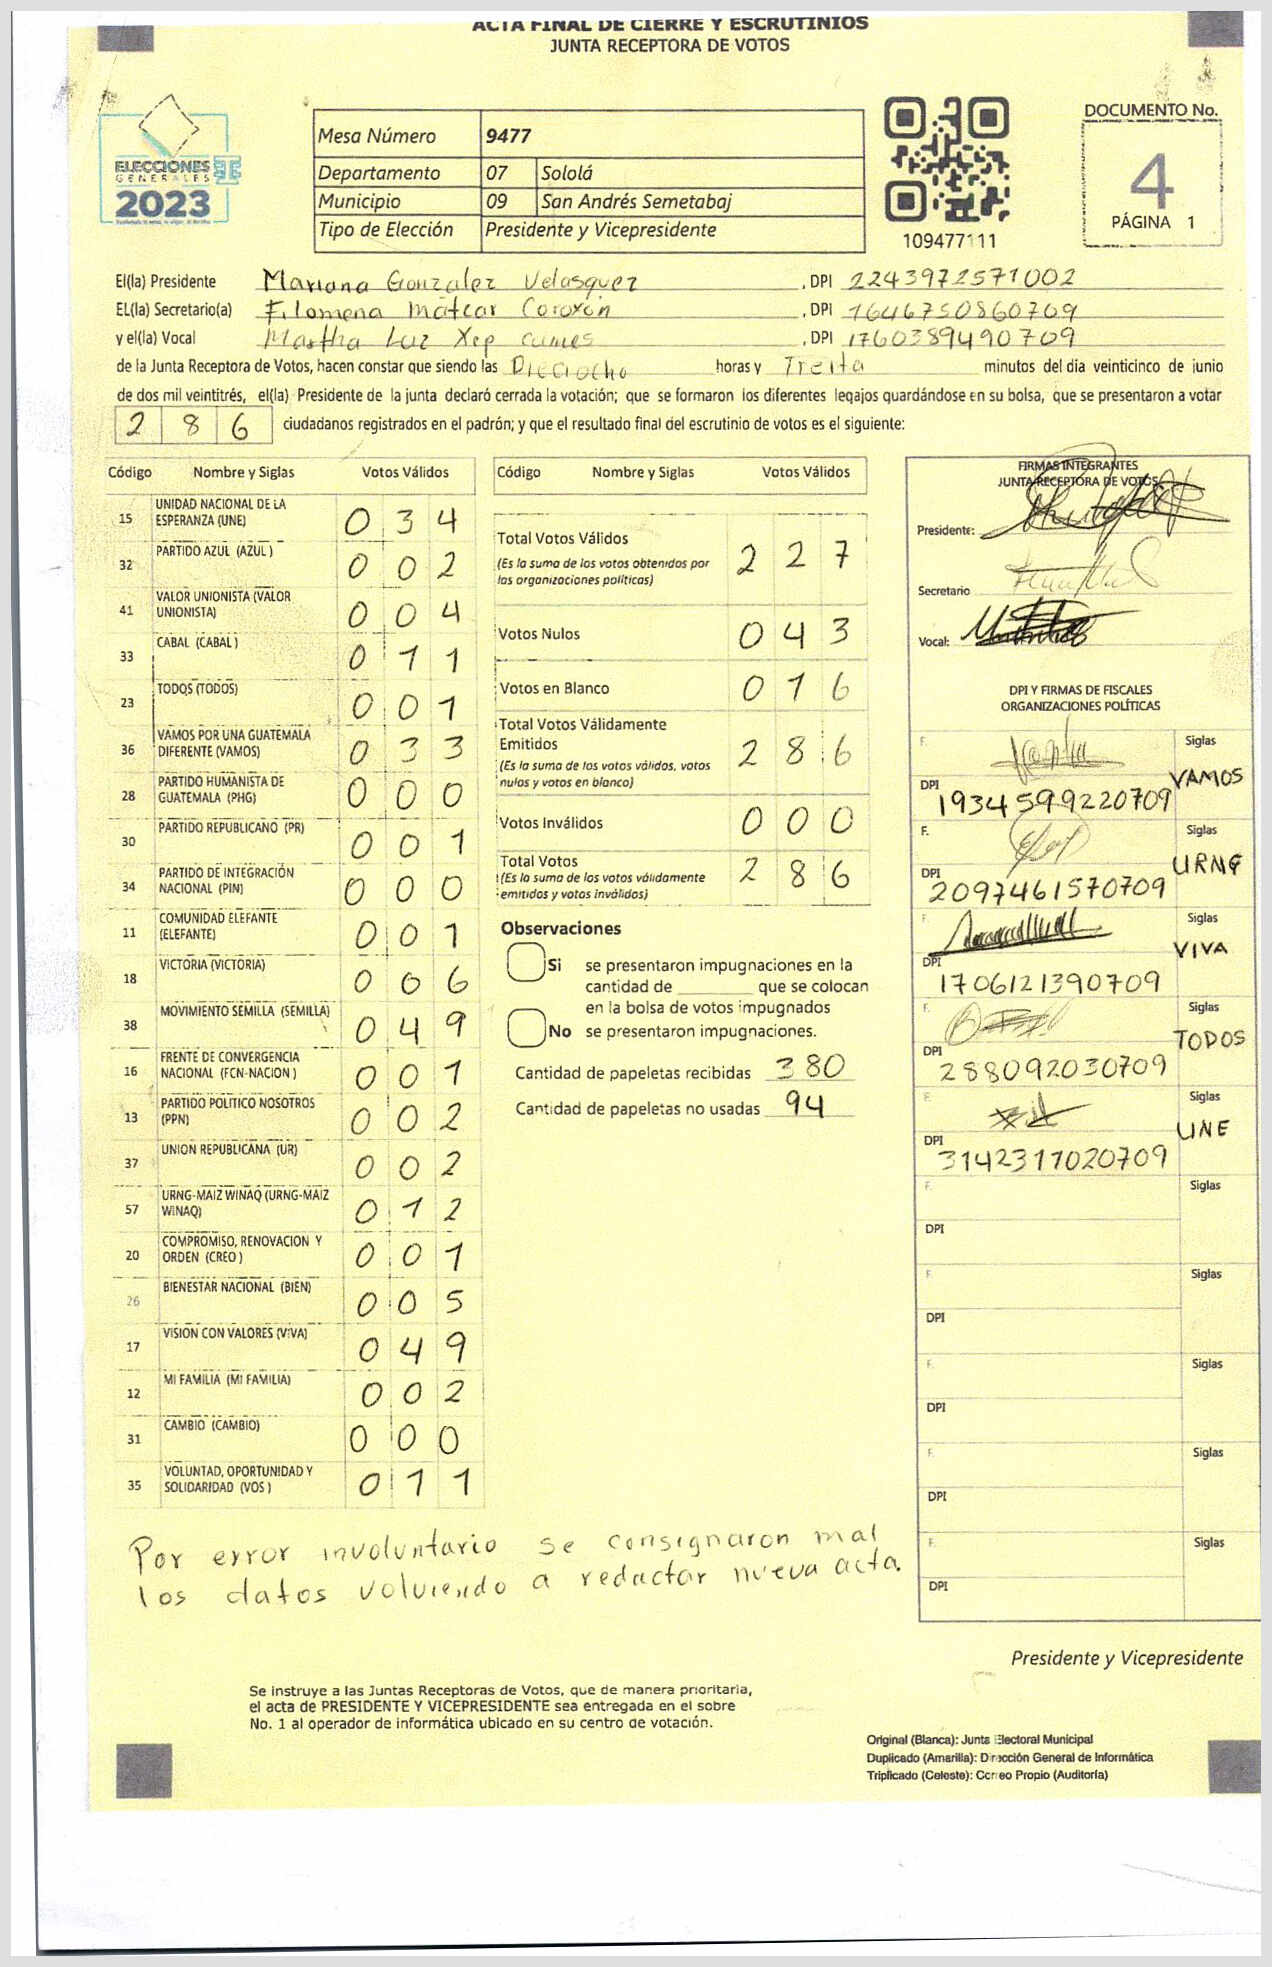 ACTA FINAL DE CIERRE Y ESCRUTINIOS
JUNTA RECEPTORA DE VOTOS
ELECCIONES
GENERALES
2023
Mesa Número 9477
Departamento 07 Sololá
Municipio 09 San Andrés Semetabaj
Tipo de Elección Presidente y Vicepresidente
109477111
DOCUMENTO No.
4
PÁGINA 1
El(la) Presidente Mariana Gonzalez Velasquez , DPI 2243972571002
EL(la) Secretario(a) Filomena Matzar Coroxón , DPI 1646750860709
y el(la) Vocal Martha Luz Xep cumes , DPI 1760389490709
de la Junta Receptora de Votos, hacen constar que siendo las Dieciocho horas y Treita minutos del día veinticinco de junio
de dos mil veintitrés, el(la) Presidente de la junta declaró cerrada la votación; que se formaron los diferentes legajos guardándose en su bolsa, que se presentaron a votar
2 8 6 ciudadanos registrados en el padrón; y que el resultado final del escrutinio de votos es el siguiente:
Código Nombre y Siglas Votos Válidos
15 UNIDAD NACIONAL DE LA
ESPERANZA (UNE) 0 3 4
32 PARTIDO AZUL (AZUL) 0 0 2
41 VALOR UNIONISTA (VALOR
UNIONISTA) 0 0 4
33 CABAL (CABAL) 0 1 1
23 TODOS (TODOS) 0 0 1
36 VAMOS POR UNA GUATEMALA
DIFERENTE (VAMOS) 0 3 3
28 PARTIDO HUMANISTA DE
GUATEMALA (PHG) 0 0 0
30 PARTIDO REPUBLICANO (PR) 0 0 1
34 PARTIDO DE INTEGRACIÓN
NACIONAL (PIN) 0 0 0
11 COMUNIDAD ELEFANTE
(ELEFANTE) 0 0 1
18 VICTORIA (VICTORIA) 0 0 6
38 MOVIMIENTO SEMILLA (SEMILLA) 0 4 9
16 FRENTE DE CONVERGENCIA
NACIONAL (FCN-NACION) 0 0 1
13 PARTIDO POLITICO NOSOTROS
(PPN) 0 0 2
37 UNION REPUBLICANA (UR) 0 0 2
57 URNG-MAIZ WINAQ (URNG-MAIZ
WINAQ) 0 1 2
20 COMPROMISO, RENOVACION Y
ORDEN (CREO) 0 0 1
26 BIENESTAR NACIONAL (BIEN) 0 0 5
17 VISION CON VALORES (VIVA) 0 4 9
12 MI FAMILIA (MI FAMILIA) 0 0 2
31 CAMBIO (CAMBIO) 0 0 0
35 VOLUNTAD, OPORTUNIDAD Y
SOLIDARIDAD (VOS) 0 1 1
Código Nombre y Siglas Votos Válidos
Total Votos Válidos 2 2 7
(Es la suma de los votos obtenidos por
las organizaciones políticas)
Votos Nulos 0 4 3
Votos en Blanco 0 1 6
Total Votos Válidamente
Emitidos 2 8 6
(Es la suma de los votos válidos, votos
nulos y votos en blanco)
Votos Inválidos 0 0 0
Total Votos 2 8 6
(Es la suma de los votos válidamente
emitidos y votos inválidos)
Observaciones
Si se presentaron impugnaciones en la
cantidad de ________ que se colocan
en la bolsa de votos impugnados
No se presentaron impugnaciones.
Cantidad de papeletas recibidas 380
Cantidad de papeletas no usadas 94
FIRMAS INTEGRANTES
JUNTA RECEPTORA DE VOTOS
Presidente:
Secretario
Vocal:
DPI Y FIRMAS DE FISCALES
ORGANIZACIONES POLÍTICAS
F. Siglas
VAMOS
DPI
1934599220709
F. Siglas
URNG
DPI
2097461570709
F. Siglas
VIVA
DPI
1706121390709
F. Siglas
TODOS
DPI
288092030709
F. Siglas
UNE
DPI
3142317020709
F. Siglas
DPI
F. Siglas
DPI
F. Siglas
DPI
F. Siglas
DPI
F. Siglas
DPI
Por error involuntario se consignaron mal
los datos volviendo a redactar nueva acta.
Presidente y Vicepresidente
Se instruye a las Juntas Receptoras de Votos, que de manera prioritaria,
el acta de PRESIDENTE Y VICEPRESIDENTE sea entregada en el sobre
No. 1 al operador de informática ubicado en su centro de votación.
Original (Blanca): Junta Electoral Municipal
Duplicado (Amarilla): Dirección General de Informática
Triplicado (Celeste): Correo Propio (Auditoría)